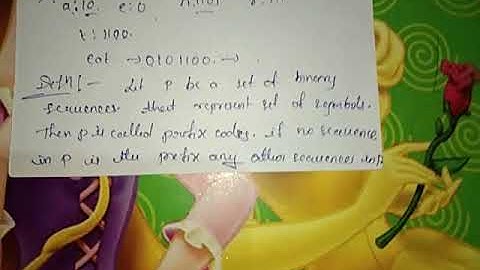 a:10 e:0
t: 1100.
eat → 0101100. →
Defn/:- Let P be a set of binary
sequences that represent set of symbols.
Then P is called prefix codes. if no sequence
in P is the prefix any other sequences in P